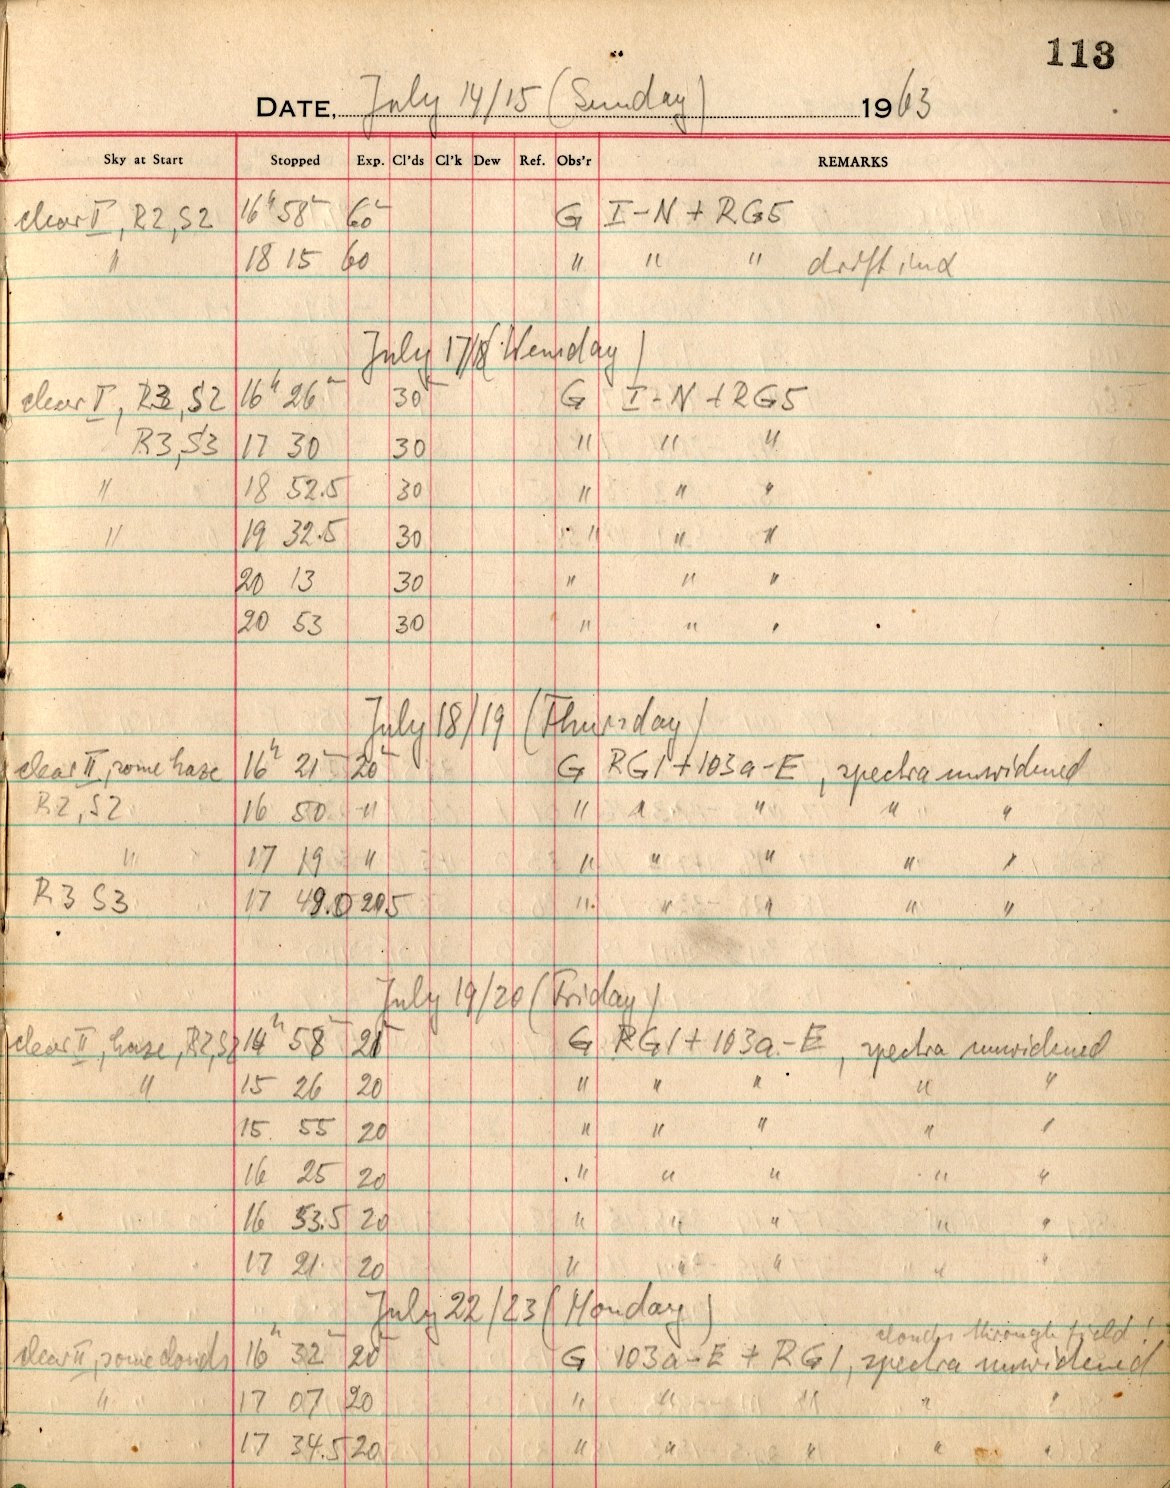 113
DATE, July 14/15 (Sunday) 1963
Sky at Start Stopped Exp. Cl'ds Cl'k Dew Ref. Obs'r REMARKS
clear I, R2, S2 16h 58m 60m G I-N + RG5
" 18 15 60 " " " drift ind
July 17/18 (Wensday)
clear I, R3, S2 16h 26m 30m G I-N + RG5
R3, S3 17 30 30 " " "
" 18 52.5 30 " " "
" 19 32.5 30 " " "
20 13 30 " " "
20 53 30 " " "
July 18/19 (Thursday)
clear II, some haze 16h 21m 20m G RG1 + 103a-E, spectra unwidened
R2, S2 16 50 " " " " " " "
" 17 19 " " " " " "
R3 S3 17 49.0 20.5 " " " " "
July 19/20 (Friday)
clear II, haze, R2, S2 14h 58m 21m G RG1 + 103a-E, spectra unwidened
" 15 26 20 " " " " "
15 55 20 " " " " "
16 25 20 " " " " "
16 53.5 20 " " " " "
17 21 20 " " " " "
July 22/23 (Monday)
clouds through field!
clear II, some clouds 16h 32m 20m G 103a-E + RG1, spectra unwidened
" 17 07 20 " " " " "
17 34.5 20 " " " " "